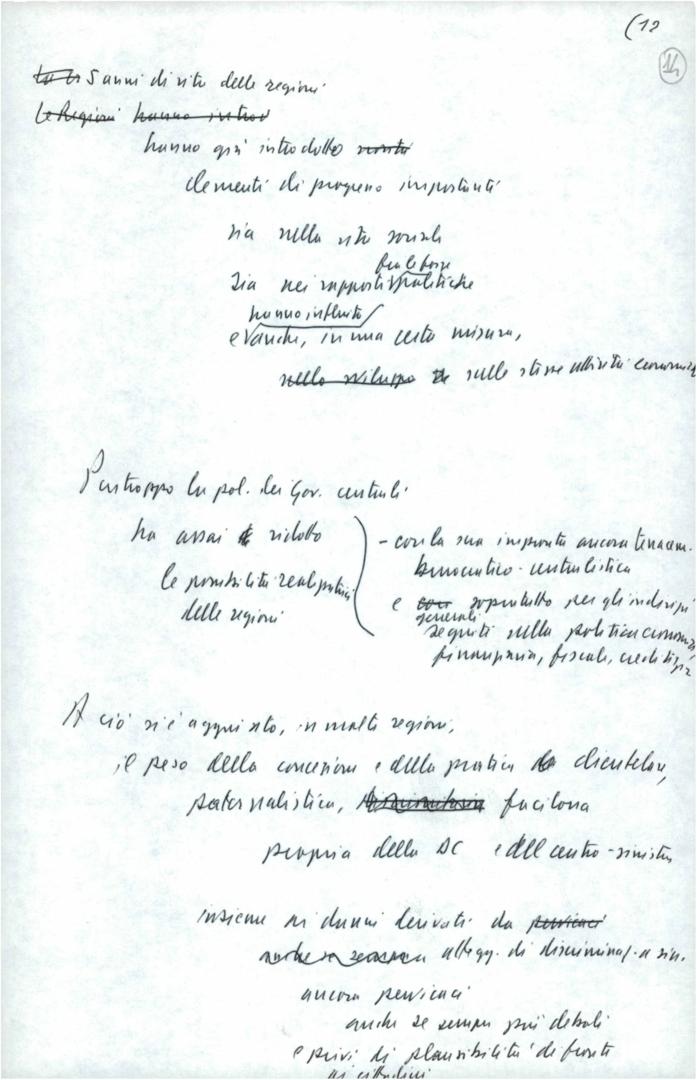 (12
14
5 anni di vita delle regioni
Le Regioni hanno introd
hanno già introdotto novità
elementi di progresso importanti
sia nella vita sociale
fra le forze
sia nei rapporti politiche
hanno influito
e anche, in una certa misura,
nello sviluppo sulle stesse attività economiche
Purtroppo la pol. dei Gov. centrali
ha assai ridotto
le possibilità realizzatrici
delle regioni
- con la sua impronta ancora tenacem.
burocratico-centralistica
e con sopratutto per gli indirizzi
generali
seguiti nella politica economica,
finanziaria, fiscale, creditizia
A ciò si è aggiunto, in molte regioni,
il peso della concezione e della pratica clientelare,
paternalistica, facilona
propria della DC e del centro-sinistra
insieme ai danni derivati da pervicaci
attegg. di discriminaz. a sin.
ancora pervicaci
anche se sempre più deboli
e privi di plausibilità di fronte
ai cittadini